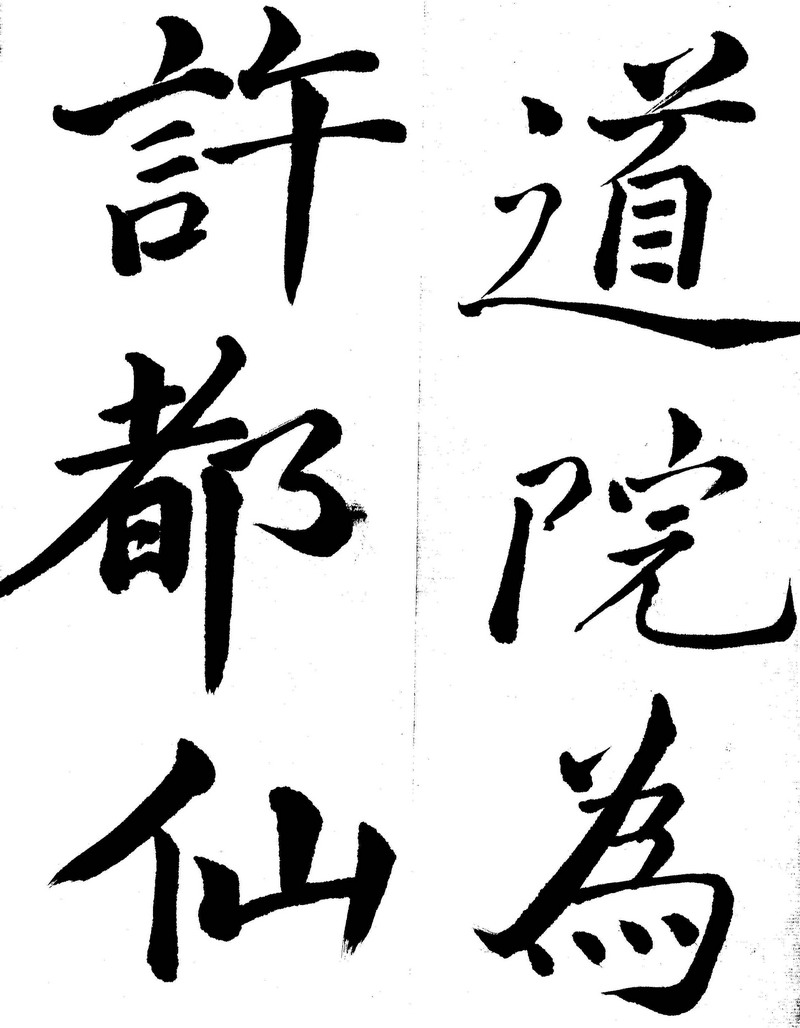 道院為
許都仙